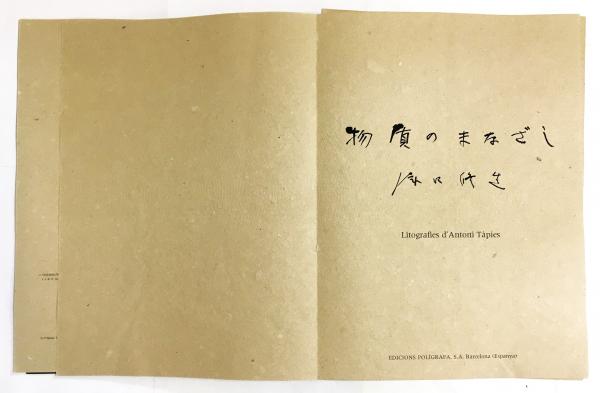 物質のまなざし
瀧口修造
Litografies d'Antoni Tàpies
EDICIONS POLÍGRAFA, S.A. Barcelona (Espanya)